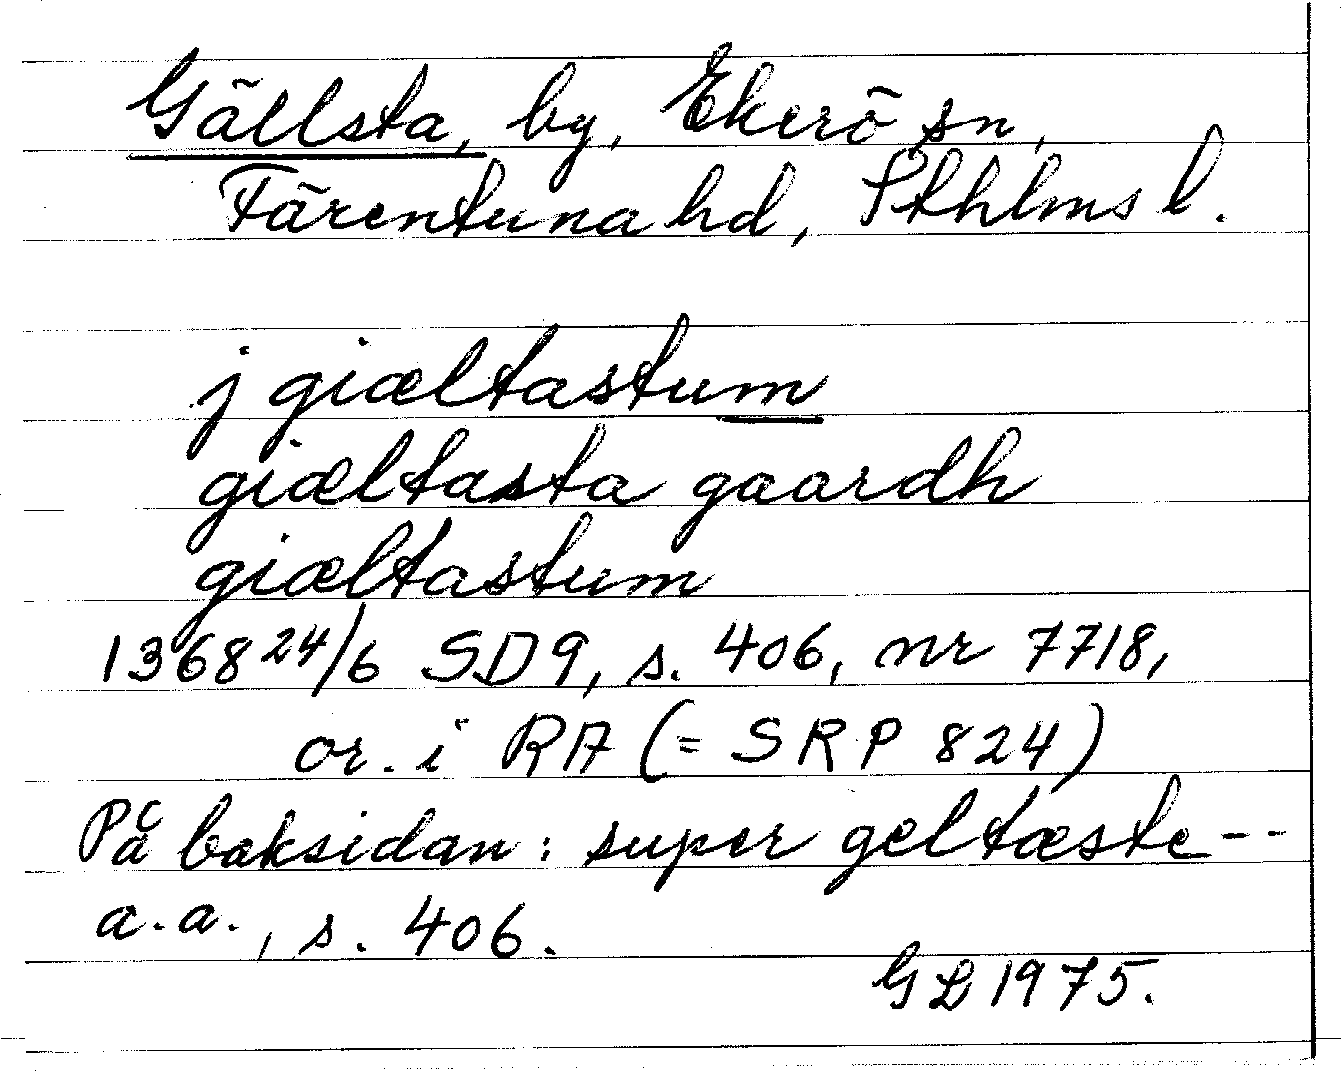 Gällsta, by, Ekerö sn,
Färentuna hd, Sthlms l.
j giæltastum
giæltasta gaardh
giæltastum
1368 24/6 SD9, s. 406, nr 7718,
or. i RA (= SRP 824)
På baksidan: super geltæste--
a.a., s. 406.
GL 1975.